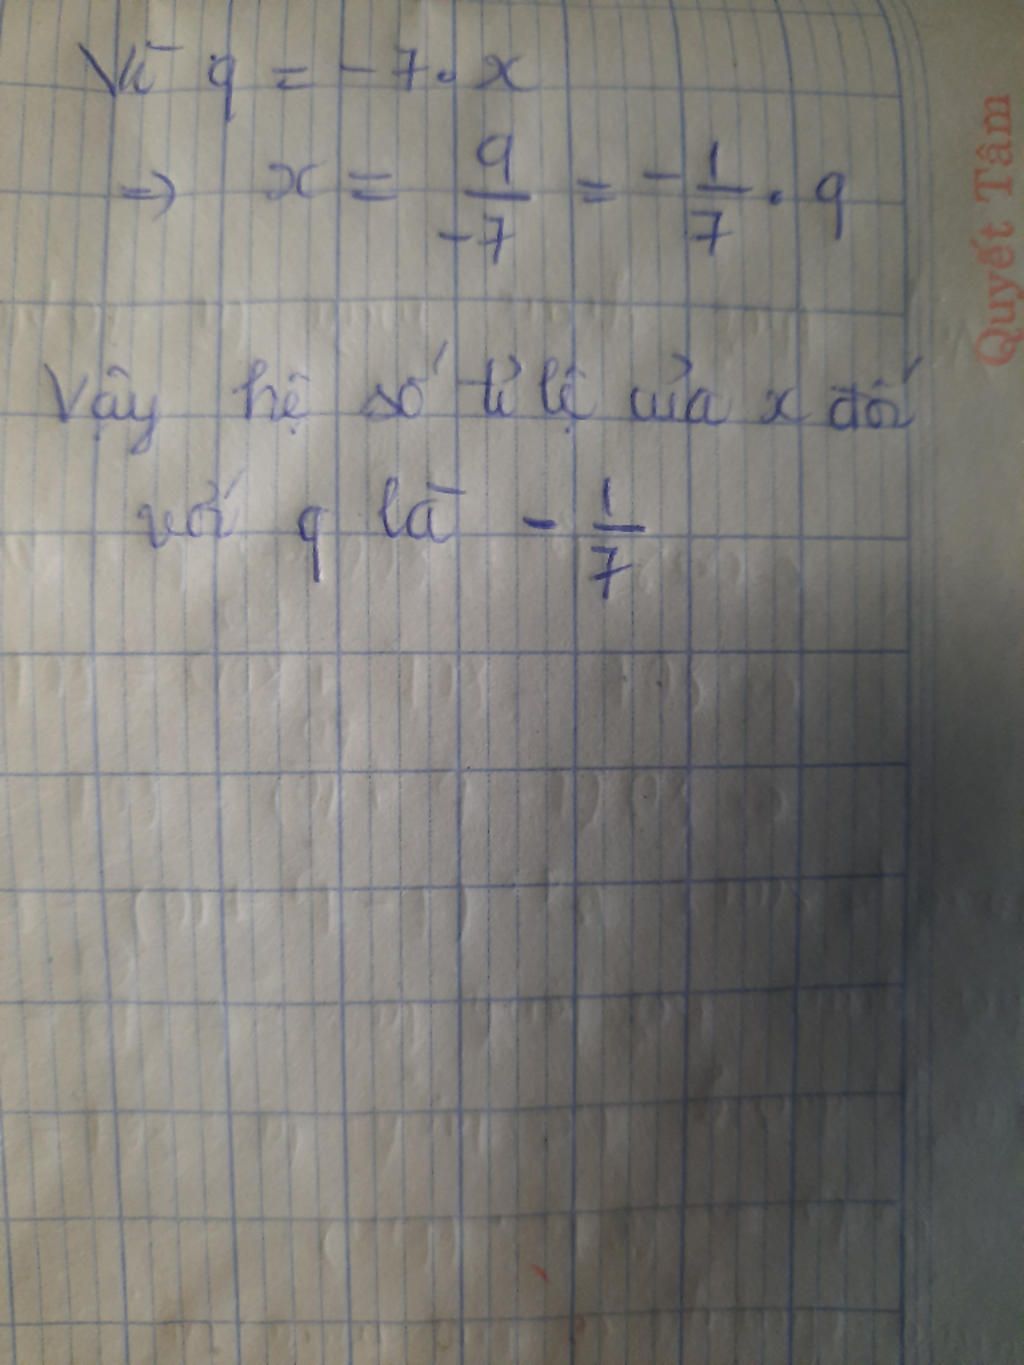 Vì q = -7. x
=> x = q/-7 = -1/7 . q
Vậy hệ số tỉ lệ của x đối
với q là -1/7
Quyết Tâm